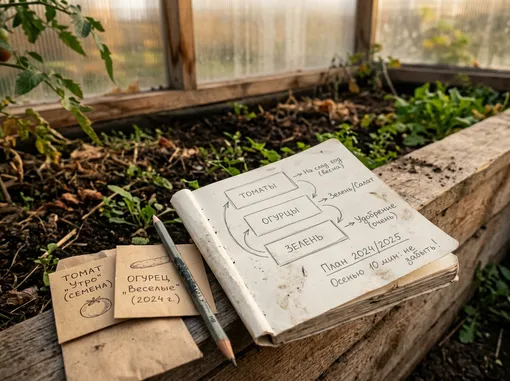 ТОМАТ
"Утро"
(СЕМЕНА)
ОГУРЕЦ
"Веселые"
(2024 г.)
ТОМАТЫ
ОГУРЦЫ
ЗЕЛЕНЬ
На след год
(весна)
Зелень/Салат
Удобрение
(очень)
План 2024/2025
Осенью 10 мин. не
забыть!